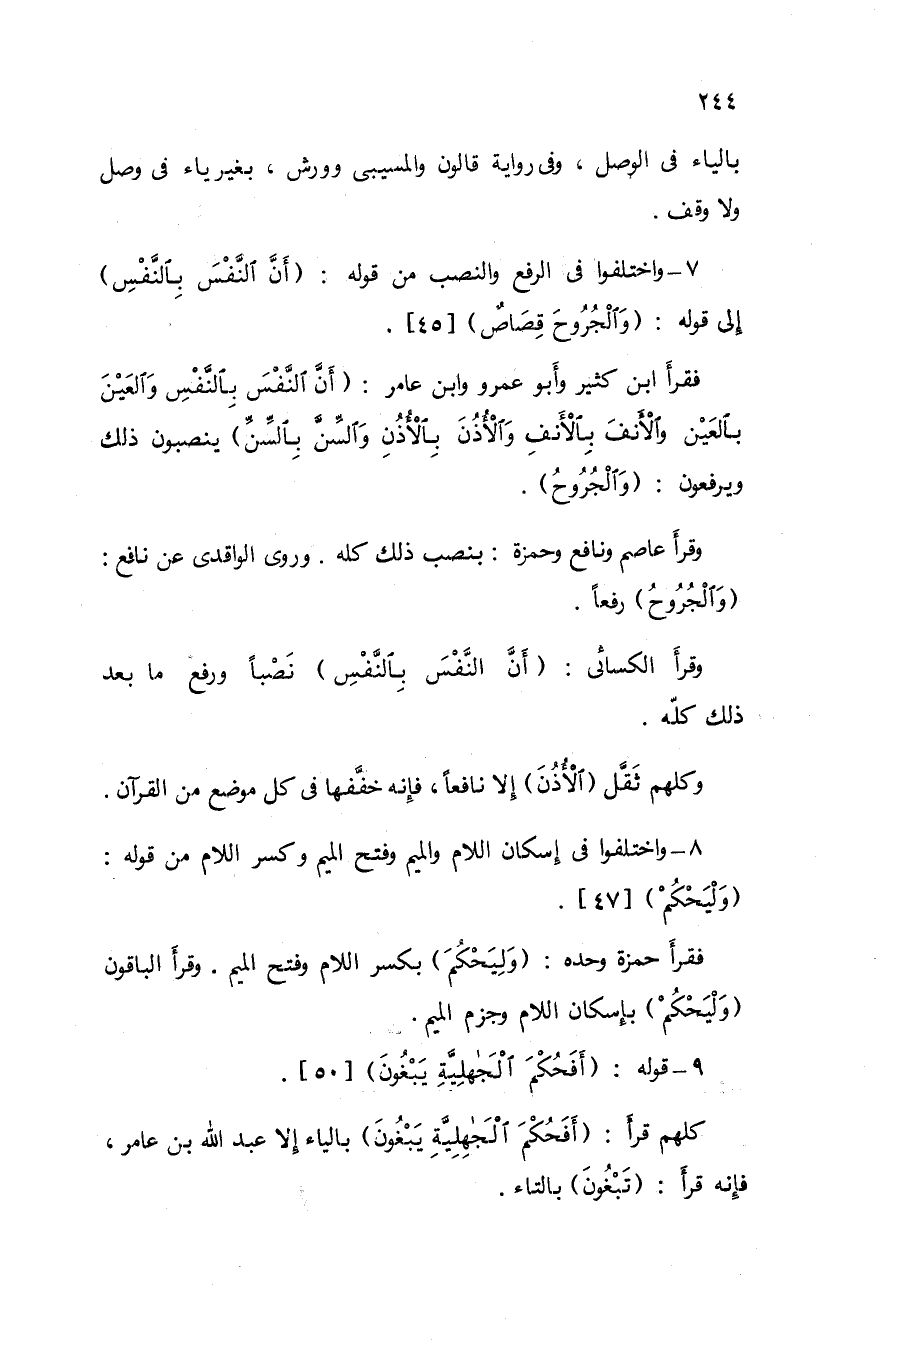 ٢٤٤
بالياء فى الوصل ، وفى رواية قالون والمسيبى وورش ، بغير ياء فى وصل
ولا وقف .
٧ – واختلفوا فى الرفع والنصب من قوله : ( أَنَّ ٱلنَّفْسَ بِٱلنَّفْسِ )
إلى قوله : ( وَٱلْجُرُوحَ قِصَاصٌ ) [ ٤٥ ] .
فقرأ ابن كثير وأبو عمرو وابن عامر : ( أَنَّ ٱلنَّفْسَ بِٱلنَّفْسِ وَٱلعَيْنَ
بِٱلعَيْنِ وٱلْأَنفَ بِٱلْأَنفِ وَٱلْأُذُنَ بِٱلْأُذُنِ وَٱلسِّنَّ بِٱلسِّنِّ ) ينصبون ذلك
ويرفعون : ( وَٱلْجُرُوحُ ) .
وقرأ عاصم ونافع وحمزة : بنصب ذلك كله . وروى الواقدى عن نافع :
( وَٱلْجُرُوحُ ) رفعاً .
وقرأ الكسائى : ( أَنَّ النَّفْسَ بِٱلنَّفْسِ ) نَصْباً ورفع ما بعد
ذلك كلّه .
وكلهم ثَقَّل ( ٱلْأُذُنَ ) إلا نافعاً ، فإنه خفَّفها فى كل موضع من القرآن .
٨ – واختلفوا فى إسكان اللام والميم وفتح الميم وكسر اللام من قوله :
( وَلْيَحْكُمْ ) [ ٤٧ ] .
فقرأ حمزة وحده : ( وَلِيَحْكُمَ ) بكسر اللام وفتح الميم . وقرأ الباقون
( وَلْيَحْكُمْ ) بإسكان اللام وجزم الميم .
٩ – قوله : ( أَفَحُكْمَ ٱلْجَٰهِلِيَّةِ يَبْغُونَ ) [ ٥٠ ] .
كلهم قرأ : ( أَفَحُكْمَ ٱلْجَٰهِلِيَّةِ يَبْغُونَ ) بالياء إلا عبد الله بن عامر ،
فإنه قرأ : ( تَبْغُونَ ) بالتاء .